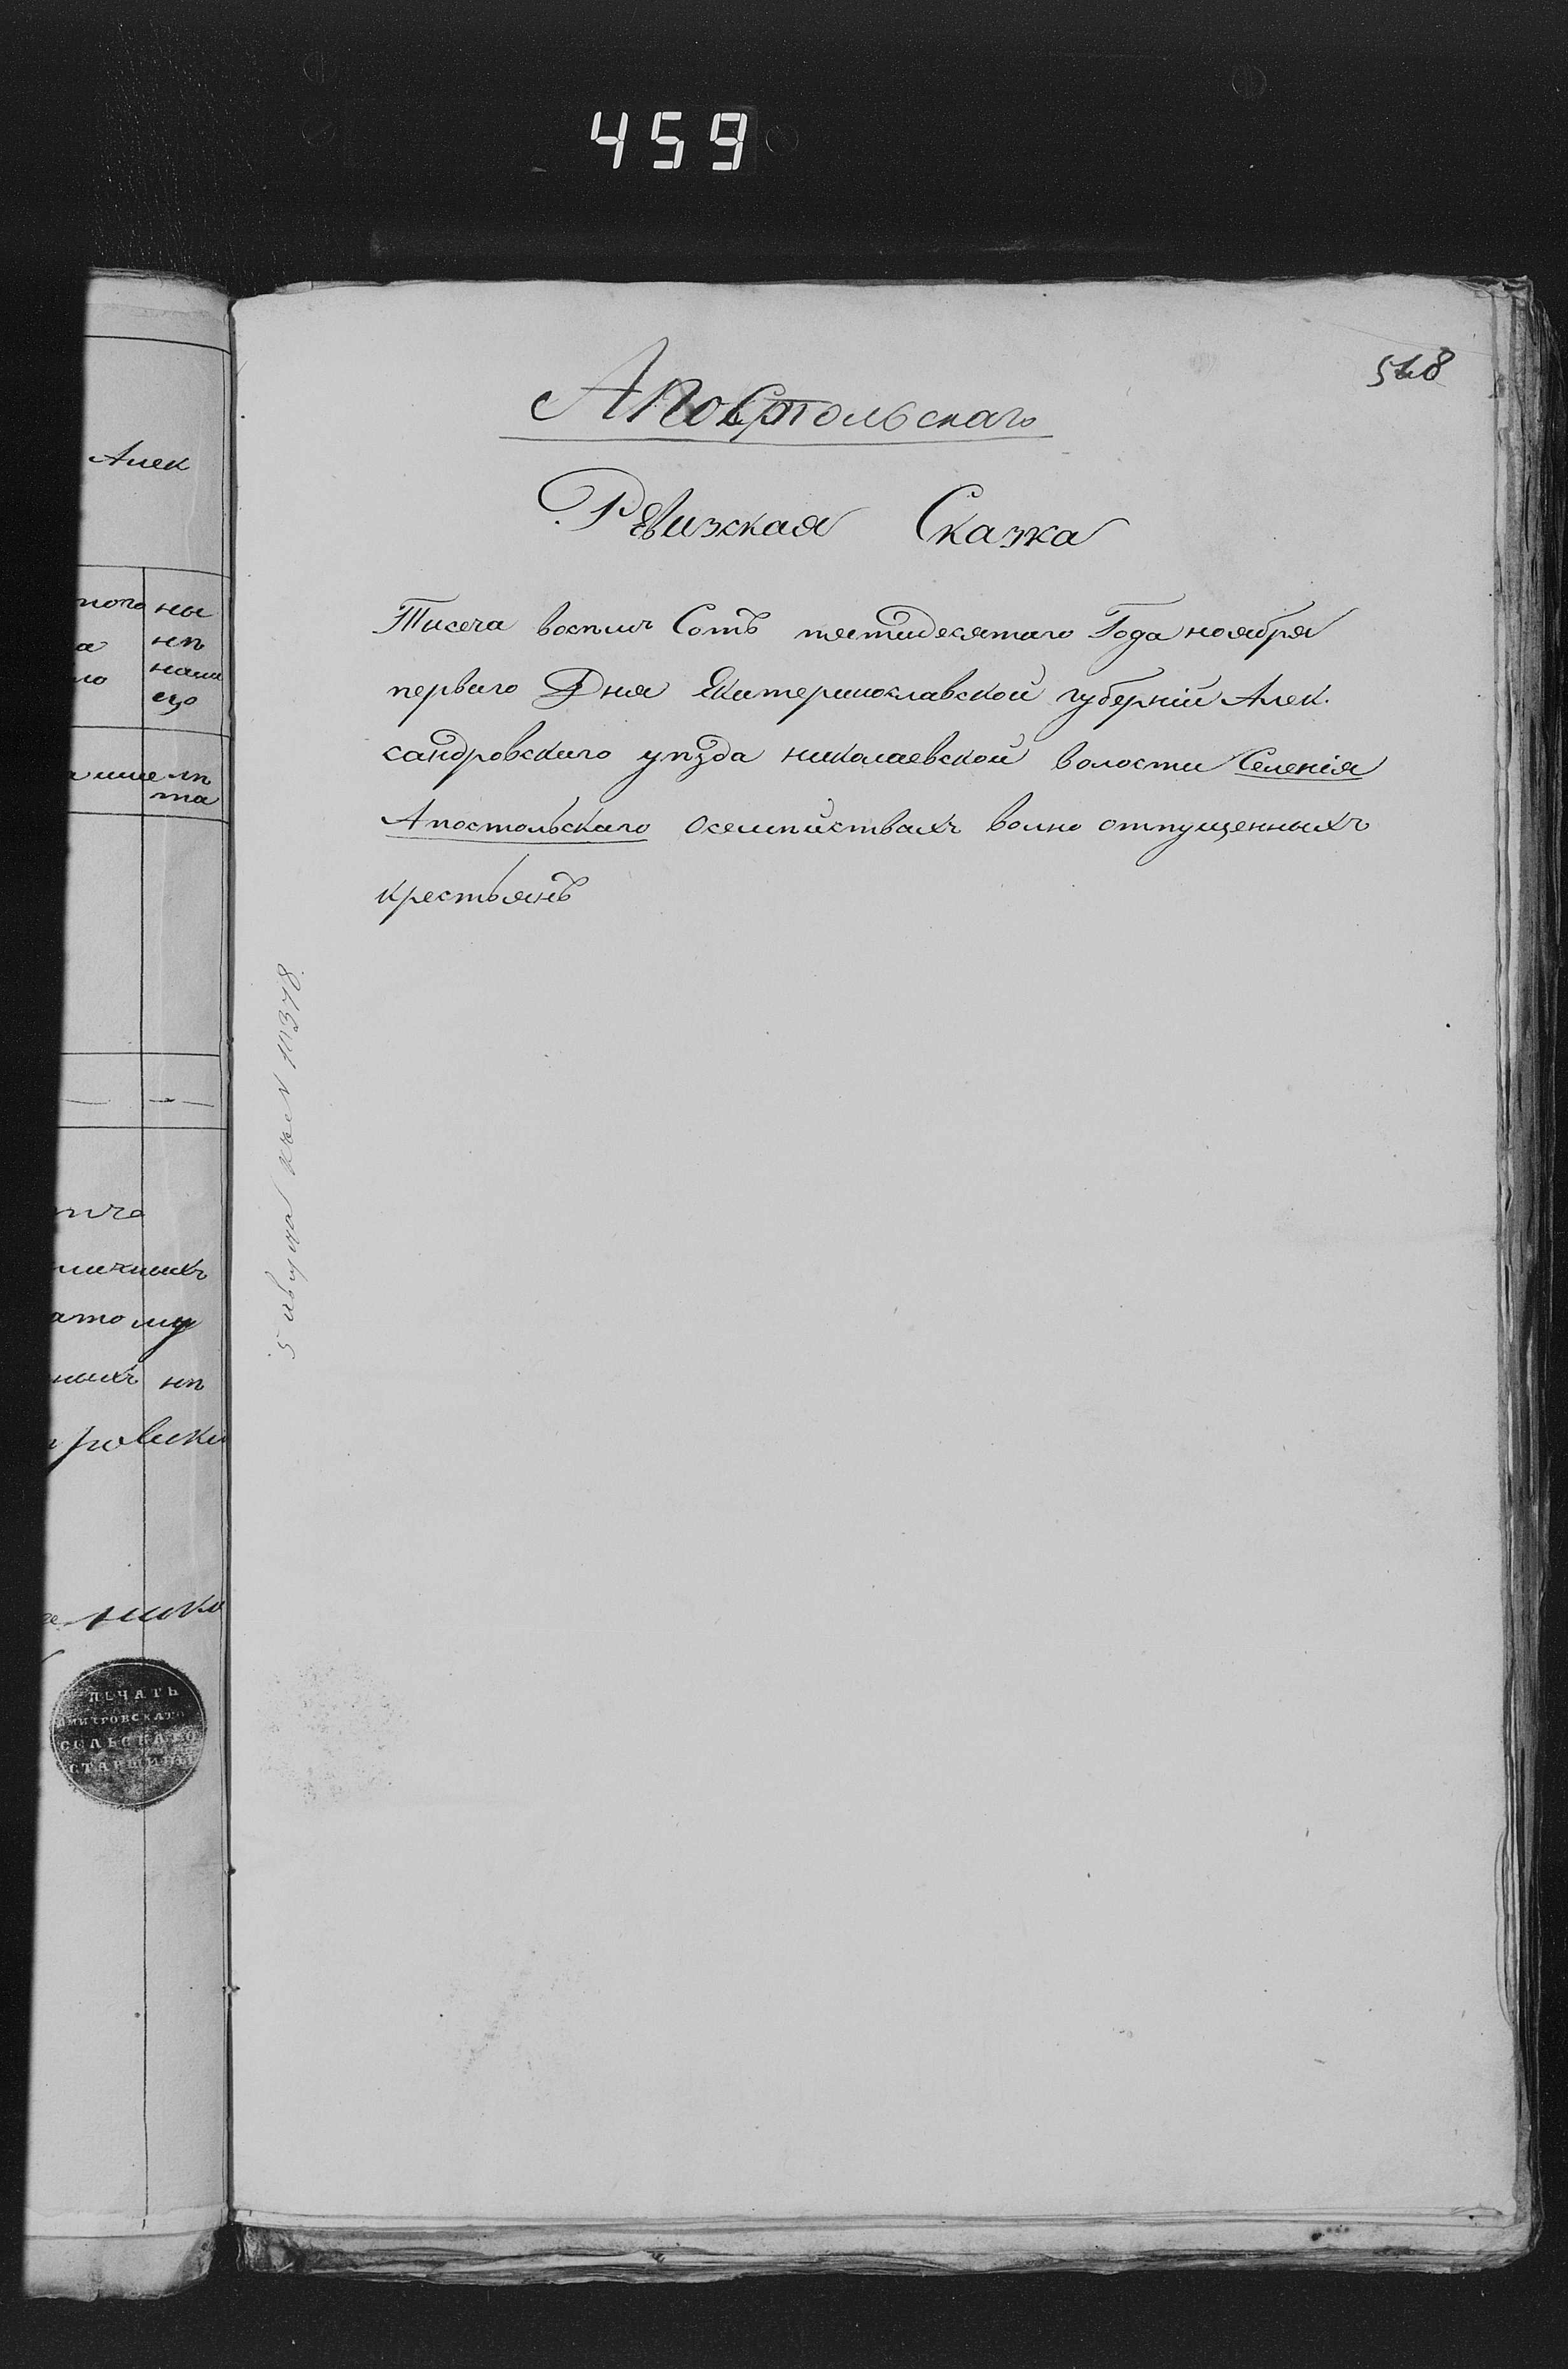 459
548
Апостольскаго
Ревизкая Сказка
Тисеча восѣмь Сотъ пятидесятаго Года ноября
перваго Дня Екатеринославской губерніи Алек
сандровскаго уѣзда николаевской волости Селенія
Апостольскаго осемѣйствахъ волно отпущенныхъ
крестьянъ
5 августа № 10378
Алек
ны
а нѣ
ло наша
ецо
лѣ
та
атому
ныхъ нѣ
ПЕЧАТЬ
МИТРОВСКАГО
СЕЛЬСКАГО
СТАРШИНЫ